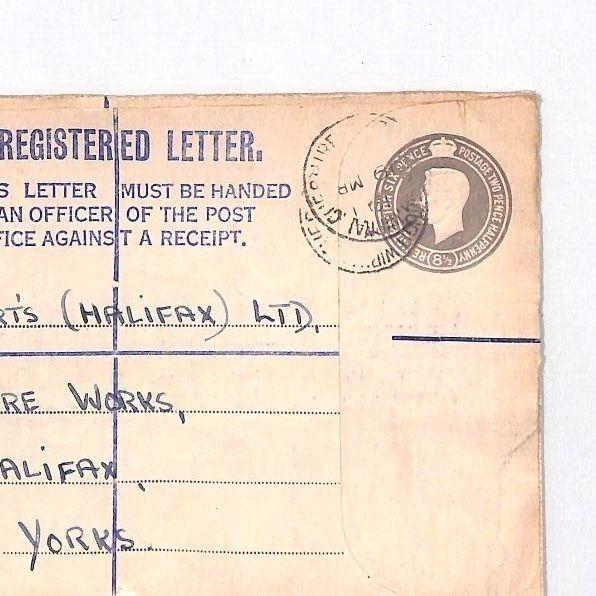 REGISTERED LETTER.
S LETTER MUST BE HANDED
AN OFFICER OF THE POST
FICE AGAINST A RECEIPT.
SIX PENCE POSTAGE TWO PENCE HALFPENNY (8½)
RT'S (HALIFAX) LTD,
RE WORKS,
ALIFAX,
YORKS.